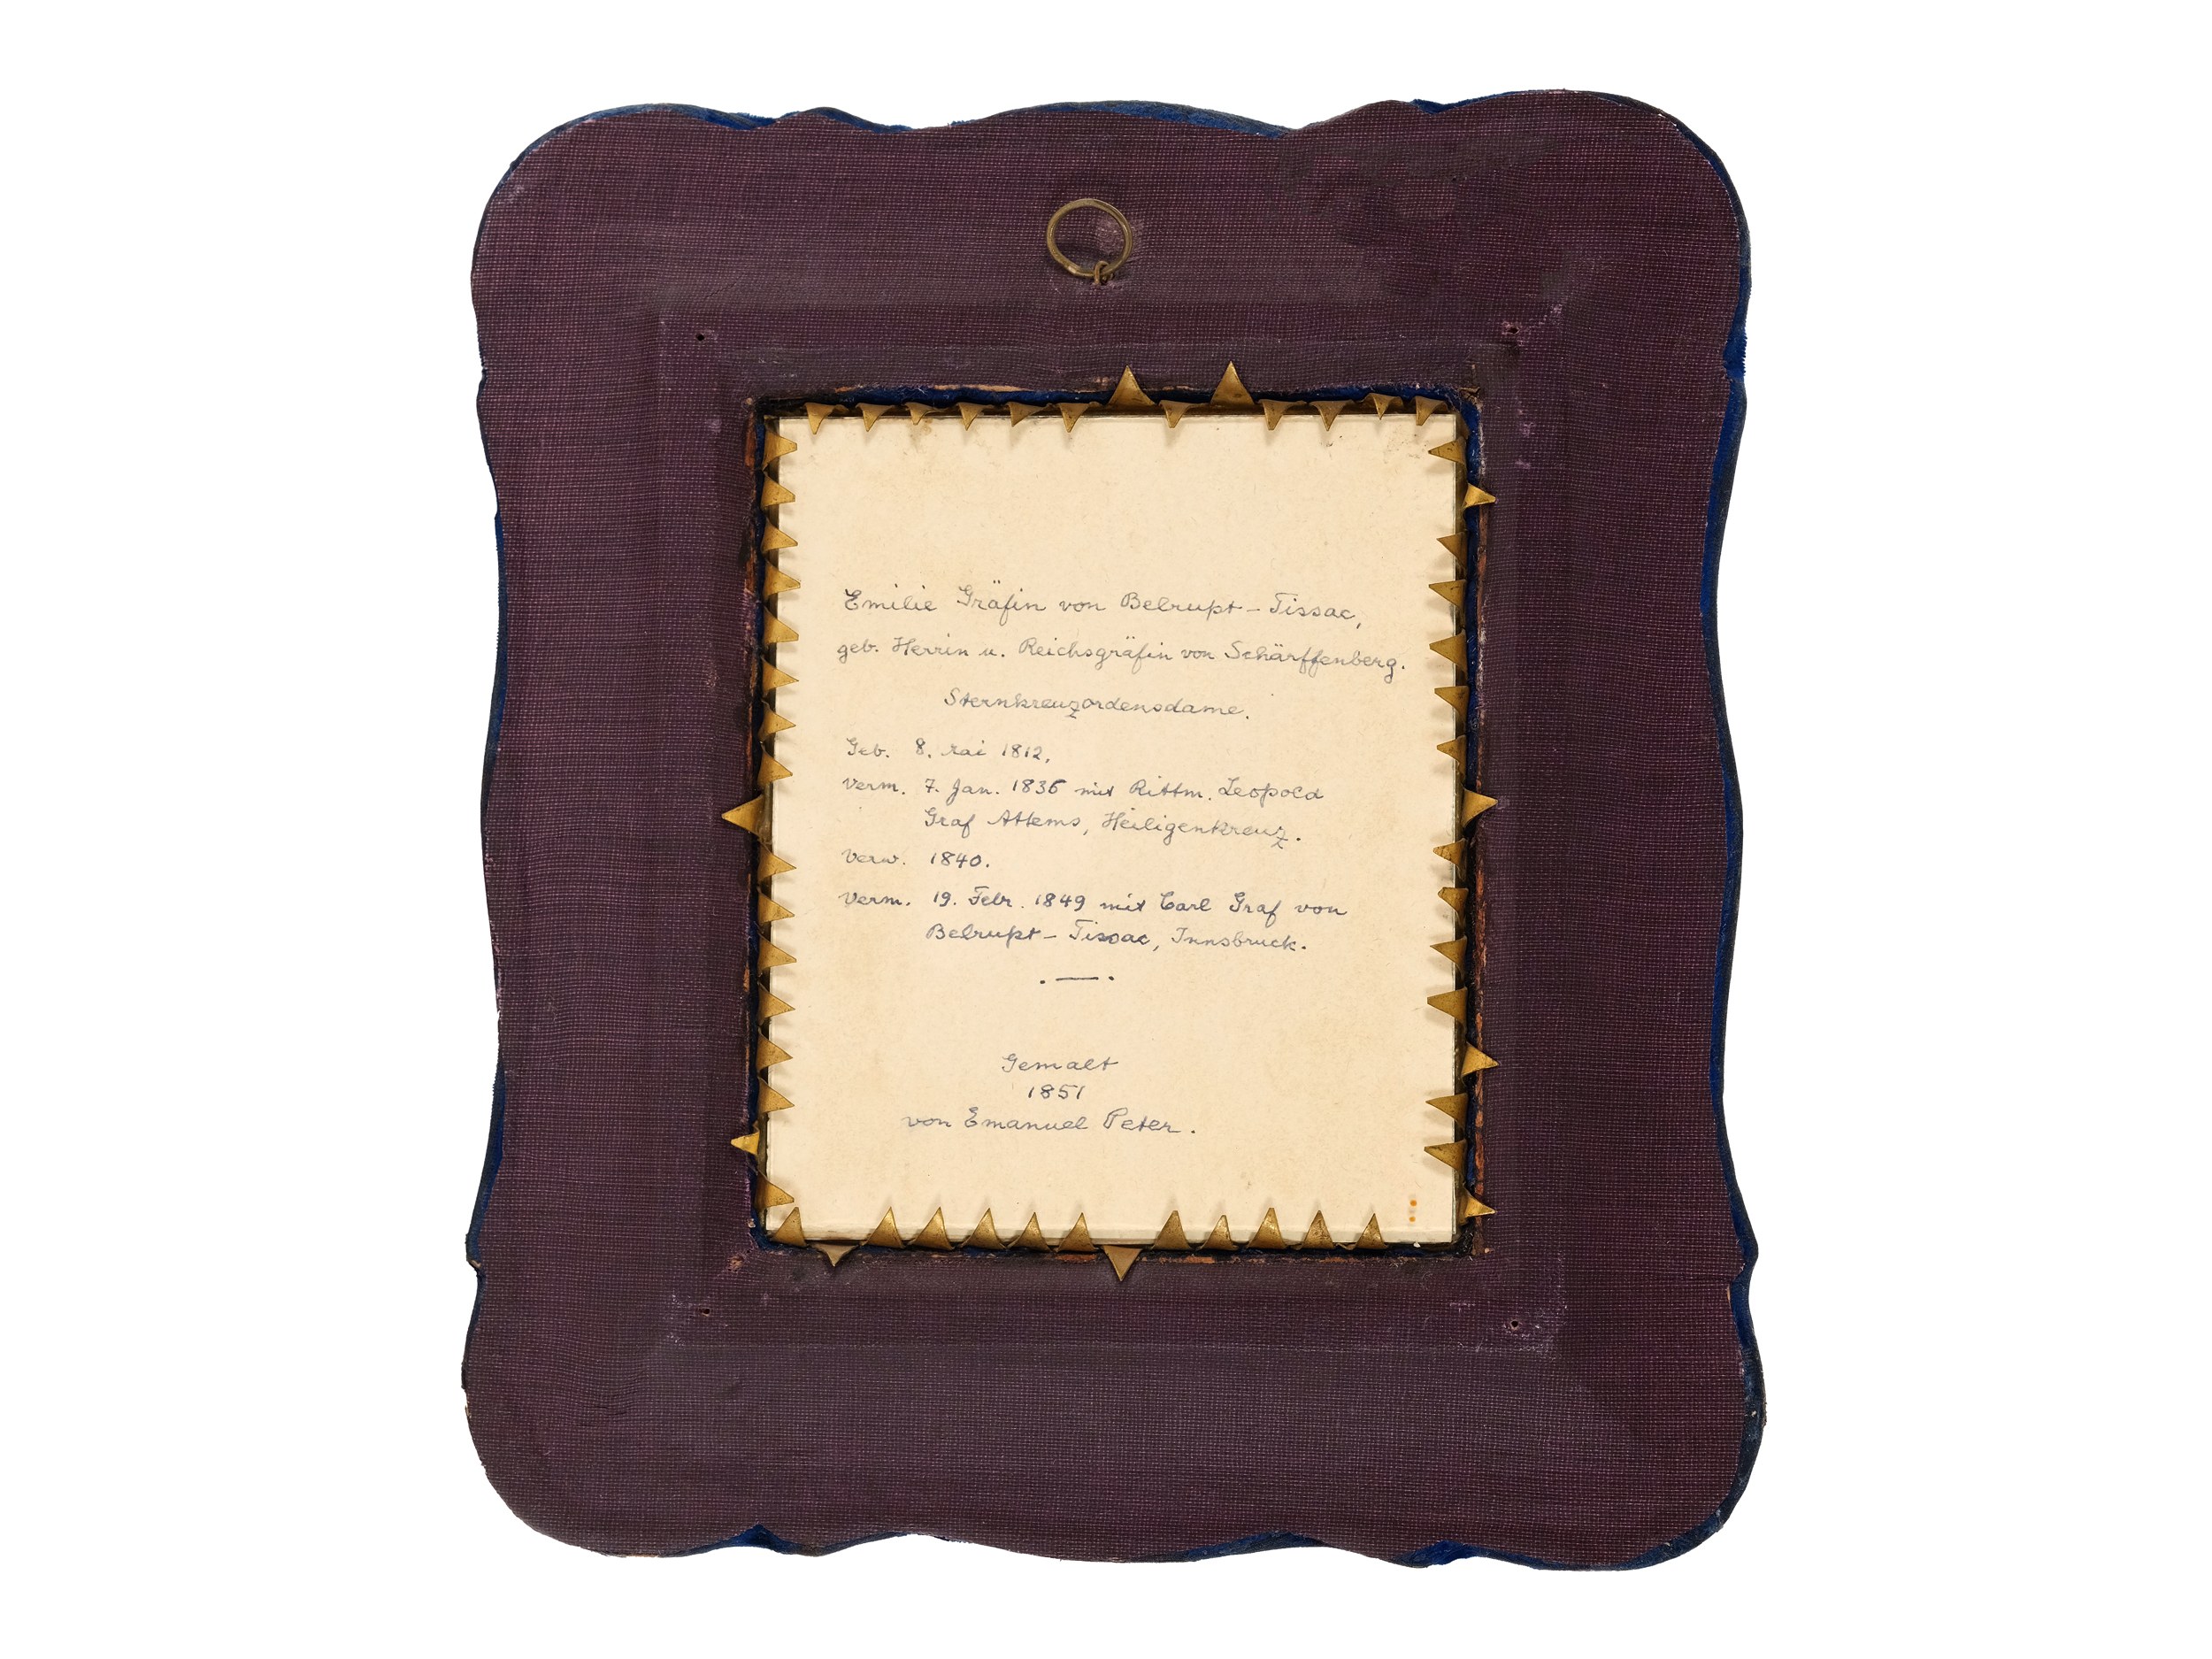 Emilie Gräfin von Belrupt-Tissac,
geb. Herrin u. Reichsgräfin von Schärffenberg.
Sternkreuzordensdame.
Geb. 8. Mai 1812,
Verm. 7. Jan. 1836 mit Rittm. Leopold
Graf Attems, Heiligenkreuz.
Verw. 1840.
Verm. 19. Febr. 1849 mit Carl Graf von
Belrupt-Tissac, Innsbruck.
Gemalt
1851
von Emanuel Peter.